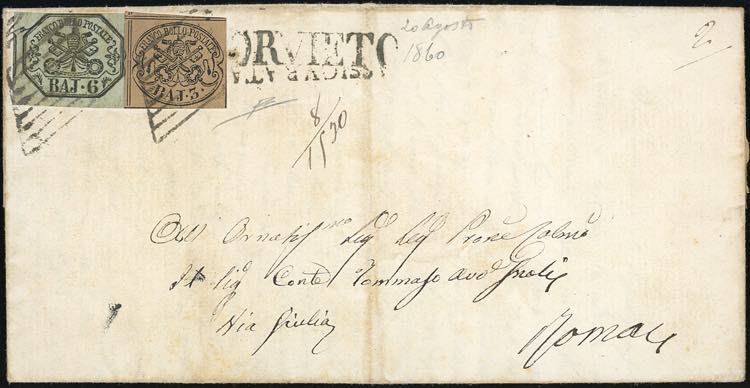 FRANCO BOLLO POSTALE
BAJ. 6
FRANCO BOLLO POSTALE
BAJ. 3
ORVIETO
ASSICURATA
20 Agosto
1860
2
8/1530
All' Ornatissmo Sig Sig Prone Colmo
Il Sig Conte Tommaso
Via Giulia
Roma